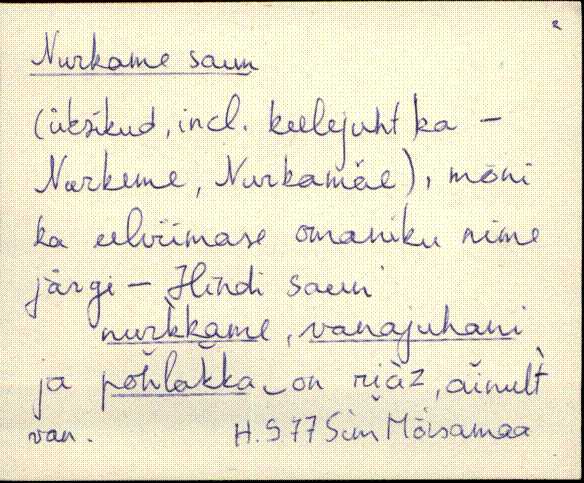 Nurkame saun
(üksikud, incl. keelejuht ka –
Nurkeme, Nurkamäe), mõni
ka eelviimase omaniku nime
järgi – Hindi saun
nur̀kkame, vanajuhani
ja põhlakka on riàz, ainult
van. H. S 77 Sim Mõisamaa